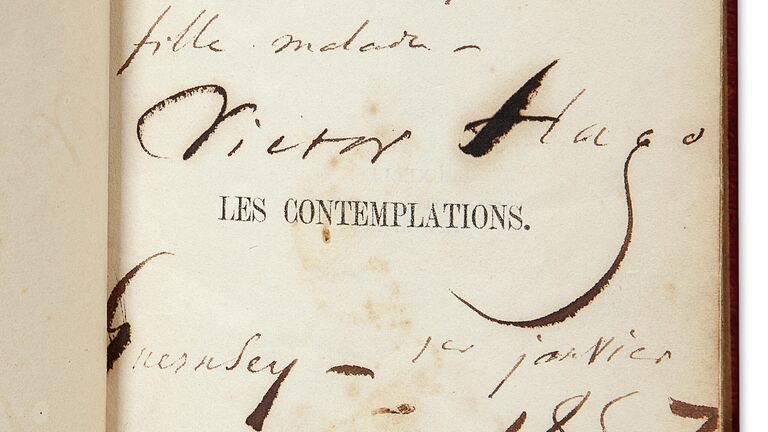 fille malade —
Victor Hugo
LES CONTEMPLATIONS.
Guernesey — 1er janvier